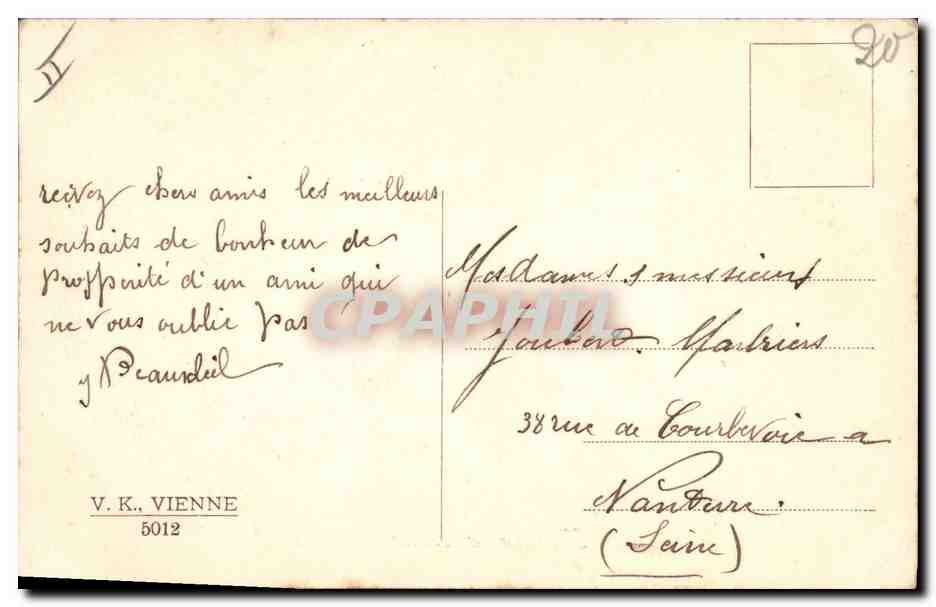 II
20
recevez chers amis les meilleurs
souhaits de bonheur de
propperité d'un ami qui
ne vous oublie pas
CPAPHIL
Mesdames, messieurs
Joubert.
38 rue de Courbevoie a
Nanterre.
(Seine)
V. K., VIENNE
5012